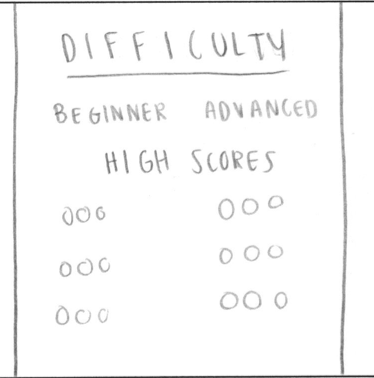 DIFFICULTY
BEGINNER ADVANCED
HIGH SCORES
000 000
000 000
000 000